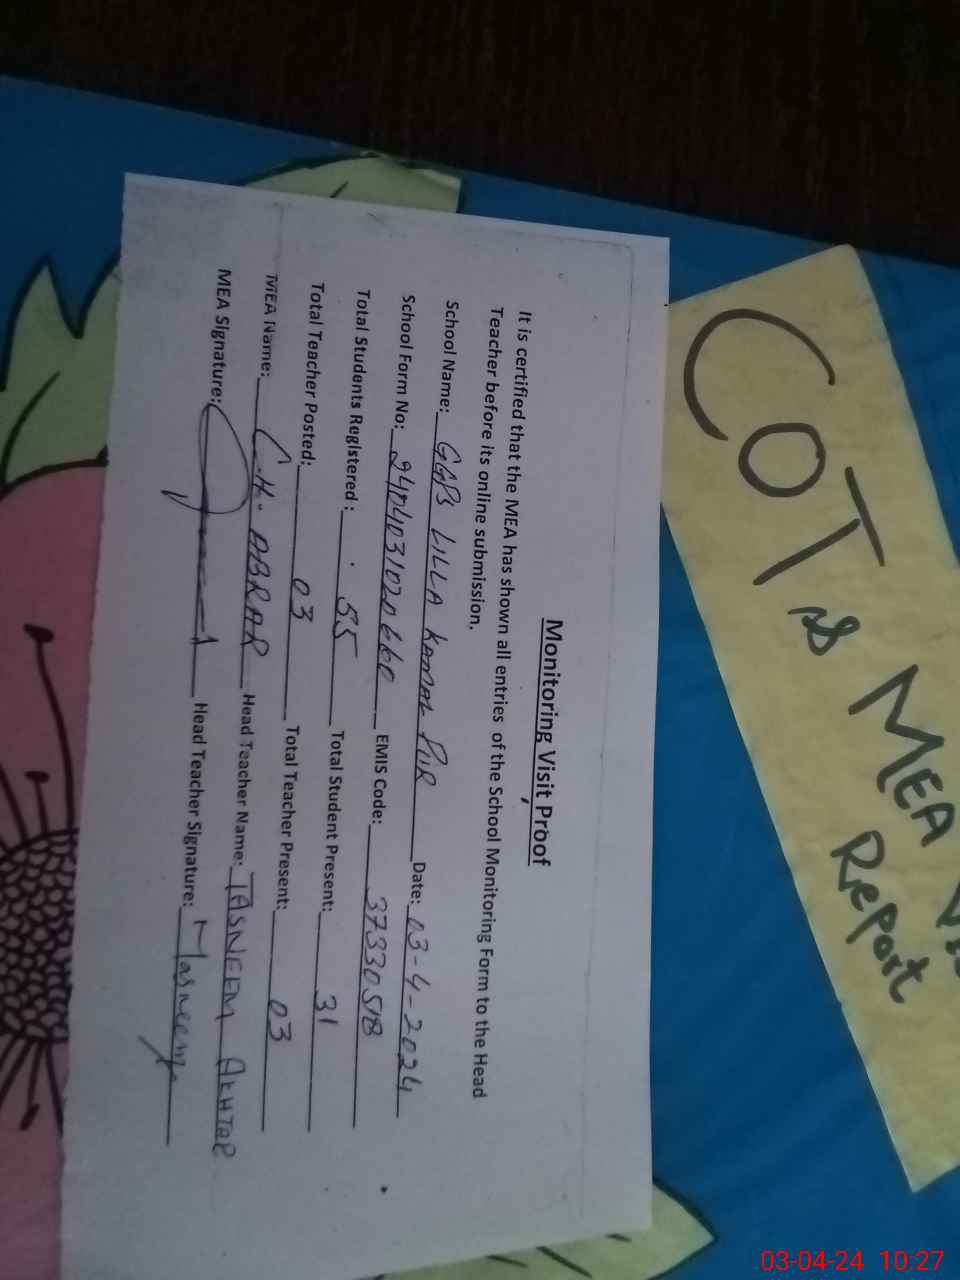 Monitoring Visit Proof
It is certified that the MEA has shown all entries of the School Monitoring Form to the Head
Teacher before its online submission.
School Name: GGPS LILLA KAMAL PUR Date: 03-4-2024
School Form No: 2404031020660 EMIS Code: 37330518
Total Students Registered: 55 Total Student Present: 31
Total Teacher Posted: 03 Total Teacher Present: 03
MEA Name: CH. ABRAR Head Teacher Name: TASNEEM AKHTAR
MEA Signature: Head Teacher Signature: Tasneem
COT & MEA
Report
03-04-24 10:27